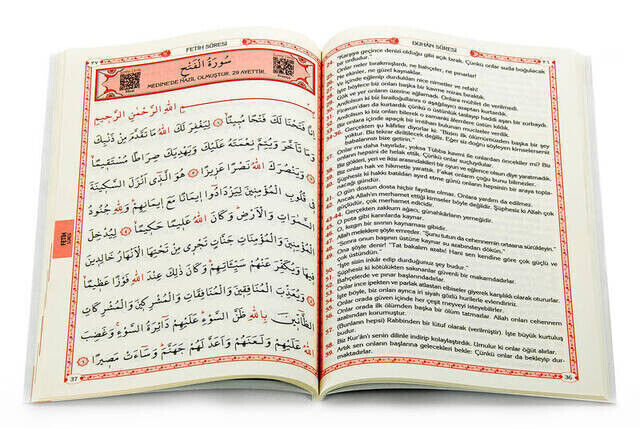 DUHÂN SÛRESİ
٣٦
"Karaya geçince denizi olduğu gibi açık bırak. Çünkü onlar suda boğulacak
bir ordudur."
Onlar neler bırakmışlardı, ne bahçeler, ne pınarlar!
Ne ekinler, ne güzel konaklar.
Ve içinde eğlenip durdukları nice nimetler ve refah!
İşte böylece biz onları başka bir kavme miras bıraktık.
Gök ve yer onların üzerine ağlamadı. Onlara mühlet de verilmedi.
Andolsun ki biz İsrailoğullarını o aşağılayıcı azaptan kurtardık.
Firavun'dan da kurtardık çünkü o üstünlük taslayıp haddi aşan bir zorbaydı.
Andolsun ki biz onları bilerek o zamanki âlemlere üstün kıldık.
Biz onlara içinde apaçık bir imtihan bulunan mucizeler verdik.
34-36. Gerçekten şu kâfirler diyorlar ki: "Bizim ilk ölümümüzden başka bir şey
yoktur. Biz tekrar diriltilecek değiliz. Eğer siz doğru söyleyen kimselerseniz
babalarımızı bize getirin."
Onlar mı daha hayırlıdır, yoksa Tübba kavmi ile onlardan öncekiler mi? Biz
onların hepsini de helak ettik. Çünkü onlar suçluydular.
Biz gökleri, yeri ve ikisi arasındakileri bir oyun ve eğlence olsun diye yaratmadık.
Biz onları hak ve hikmetle yarattık. Fakat onların çoğu bunu bilmezler.
Şüphesiz ki hakkı batıldan ayırd etme günü onların hepsinin bir araya toplanacağı gündür.
O gün dostun dosta hiçbir faydası olmaz. Onlara yardım da edilmez.
Ancak Allah'ın merhamet ettiği kimseler böyle değildir. Şüphesiz ki Allah çok
güçlüdür, çok merhamet edicidir.
43-44. Gerçekten zakkum ağacı, günahkârların yemeğidir.
O pota gibi karınlarda kaynar.
O, kızgın bir sıvının kaynaması gibidir.
Allah meleklere şöyle emreder. "Şunu tutun da cehennemin ortasına sürükleyin."
"Sonra onun başının üstüne kaynar su azabından dökün."
Ona şöyle denir! "Tat bakalım azabı! Hani sen kendine göre çok güçlü ve
çok üstündün."
"İşte sizin inkâr edip durduğunuz şey budur."
Şüphesiz ki kötülükten sakınanlar güvenli bir makamdadırlar.
Bahçelerde ve pınar başlarındadırlar.
Onlar ince ipekten ve parlak atlastan elbiseler giyerek karşılıklı olarak otururlar.
İşte böyle, biz onları ayrıca iri siyah gözlü hurilerle evlendiririz.
Onlar orada güven içinde her çeşit meyveyi isteyebilirler.
Onlar orada ilk ölümden başka bir ölüm tatmazlar. Allah onları cehennem
azabından korumuştur.
57. (Bunların hepsi) Rabbinden bir lütuf olarak (verilmiştir). İşte büyük kurtuluş
budur.
58. Biz Kur'an'ı senin dilinle indirip kolaylaştırdık. Umulur ki onlar öğüt alırlar.
59. Artık sen onların başlarına gelecekleri bekle: Çünkü onlar da bekleyip durmaktadırlar.
36
FETİH SÛRESİ
٣٧
سُورَةُ الْفَتْحِ
MEDİNE'DE NAZİL OLMUŞTUR. 29 AYETTİR.
بِسْمِ اللهِ الرَّحْمٰنِ الرَّحِيمِ
اِنَّا فَتَحْنَا لَكَ فَتْحًا مُبِينًا ﴿١﴾ لِيَغْفِرَ لَكَ اللهُ مَا تَقَدَّمَ مِنْ ذَنْبِكَ
وَمَا تَاَخَّرَ وَيُتِمَّ نِعْمَتَهُ عَلَيْكَ وَيَهْدِيَكَ صِرَاطًا مُسْتَقِيمًا ﴿٢﴾
وَيَنْصُرَكَ اللهُ نَصْرًا عَزِيزًا ﴿٣﴾ هُوَ الَّذِى اَنْزَلَ السَّكِينَةَ
فِى قُلُوبِ الْمُؤْمِنِينَ لِيَزْدَادُوا اِيمَانًا مَعَ اِيمَانِهِمْ وَلِلّٰهِ جُنُودُ
السَّمٰوَاتِ وَالْاَرْضِ وَكَانَ اللهُ عَلِيمًا حَكِيمًا ﴿٤﴾ لِيُدْخِلَ
الْمُؤْمِنِينَ وَالْمُؤْمِنَاتِ جَنَّاتٍ تَجْرِى مِنْ تَحْتِهَا الْاَنْهَارُ خَالِدِينَ
فِيهَا وَيُكَفِّرَ عَنْهُمْ سَيِّئَاتِهِمْ وَكَانَ ذٰلِكَ عِنْدَ اللهِ فَوْزًا عَظِيمًا
﴿٥﴾ وَيُعَذِّبَ الْمُنَافِقِينَ وَالْمُنَافِقَاتِ وَالْمُشْرِكِينَ وَالْمُشْرِكَاتِ
الظَّانِّينَ بِاللهِ ظَنَّ السَّوْءِ عَلَيْهِمْ دَائِرَةُ السَّوْءِ وَغَضِبَ
اللهُ عَلَيْهِمْ وَلَعَنَهُمْ وَاَعَدَّ لَهُمْ جَهَنَّمَ وَسَاءَتْ مَصِيرًا ﴿٦﴾
FETİH
37